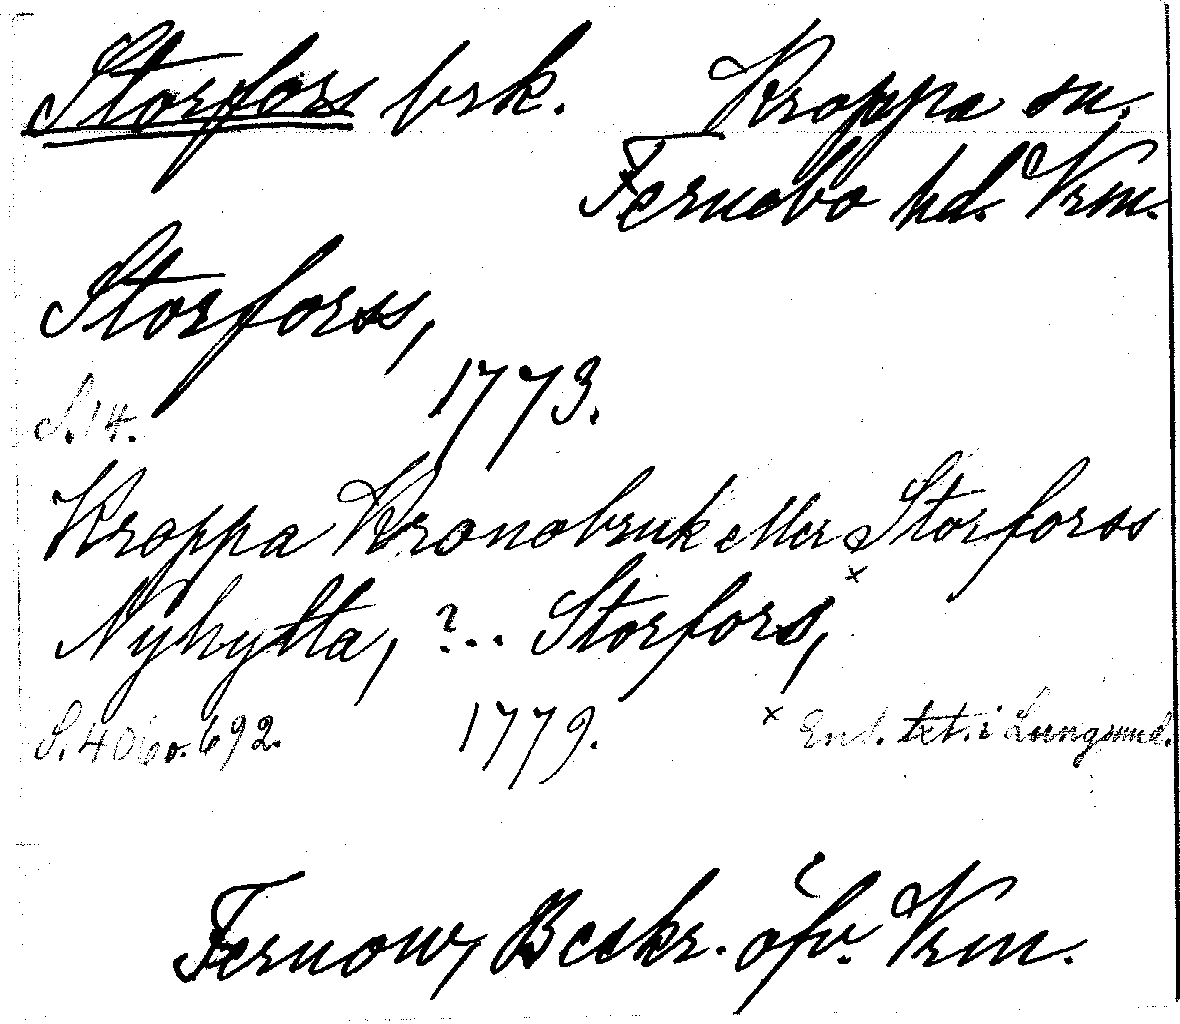 Storfors brk. Kroppa sn.
Fernebo hd. Vrm.
Storforss,
1773.
S. 14.
Kroppa Kronobruk eller Storforss
×
Nyhytta, ?.. Storfors,
S. 406 o. 692. 1779. × Enl. tet. i Lungsund.
Fernow, Beskr. öfv. Vrm.